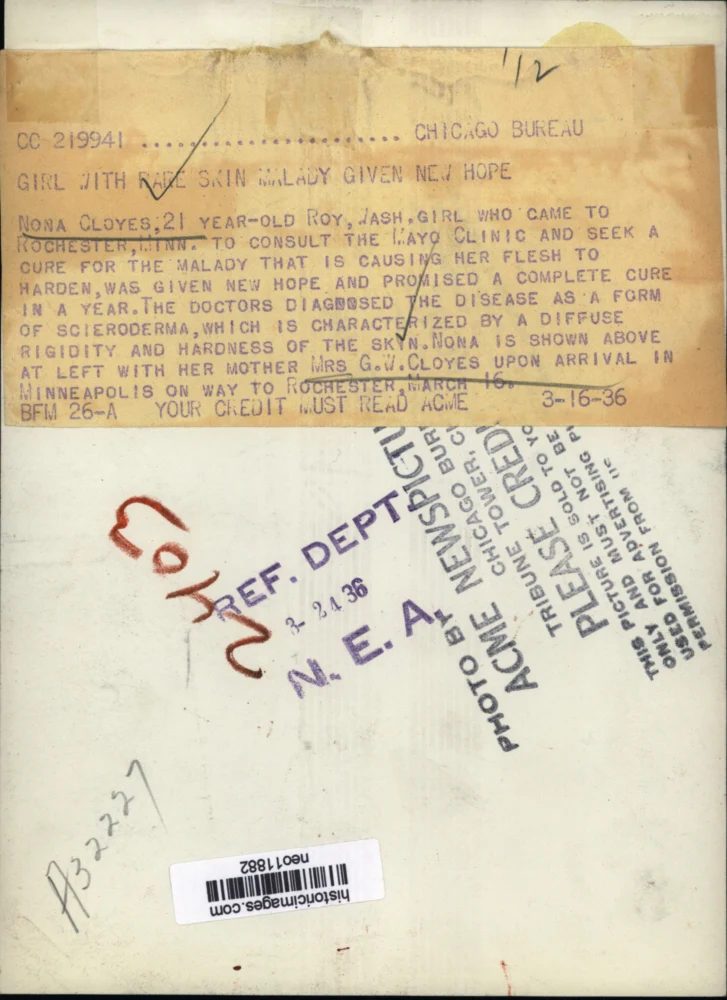 1/2
CC 219941 ........................ CHICAGO BUREAU
GIRL WITH RARE SKIN MALADY GIVEN NEW HOPE
NONA CLOYES,21 YEAR-OLD ROY,WASH.GIRL WHO CAME TO
ROCHESTER,MINN. TO CONSULT THE MAYO CLINIC AND SEEK A
CURE FOR THE MALADY THAT IS CAUSING HER FLESH TO
HARDEN,WAS GIVEN NEW HOPE AND PROMISED A COMPLETE CURE
IN A YEAR.THE DOCTORS DIAGNOSED THE DISEASE AS A FORM
OF SCIERODERMA,WHICH IS CHARACTERIZED BY A DIFFUSE
RIGIDITY AND HARDNESS OF THE SKIN.NONA IS SHOWN ABOVE
AT LEFT WITH HER MOTHER MRS G.W.CLOYES UPON ARRIVAL IN
MINNEAPOLIS ON WAY TO ROCHESTER,MARCH 16.
BFM 26-A YOUR CREDIT MUST READ ACME 3-16-36
PHOTO BY
ACME NEWSPICTU
CHICAGO BUR
TRIBUNE TOWER, C
PLEASE CREDI
THIS PICTURE IS SOLD TO YO
ONLY AND MUST NOT BE
USED FOR ADVERTISING P
PERMISSION FROM US
REF. DEPT.
3-24 36
N. E. A.
2403
A32227
historicimages.com
neo11882